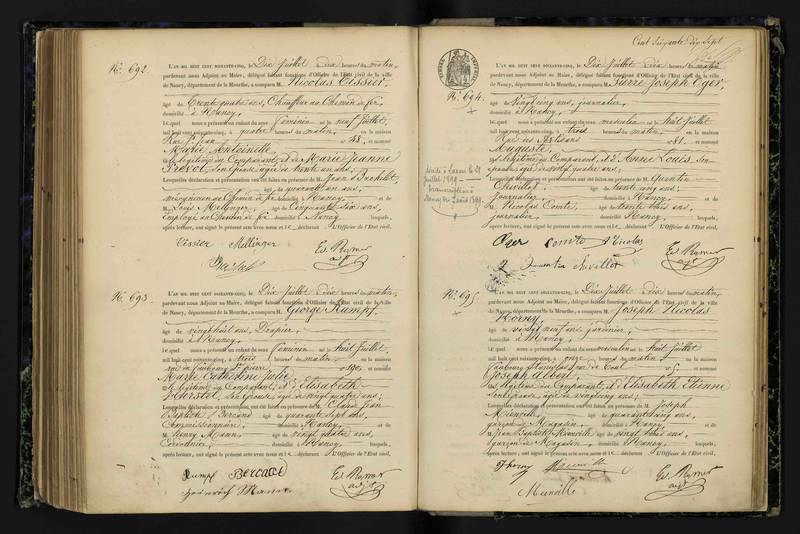 N.º 692.
L'AN MIL HUIT CENT SOIXANTE-CINQ, le Dix Juillet à dix heures du matin,
pardevant nous Adjoint au Maire, délégué faisant fonctions d'Officier de l'Etat civil de la ville
de Nancy, département de la Meurthe, a comparu M. Nicolas Cissier,
âgé de Trente quatre ans, Chauffeur au Chemin de fer,
domicilié à Nancy,
lequel nous a présenté un enfant du sexe féminin né le neuf Juillet
mil huit cent soixante-cinq, à quatre heures du matin, en la maison
Rue St Jean nº 48, et nommé
Marie Antoinette
fille légitime du Comparant, et de Marie Jeanne
Prévot, son épouse, âgée de trente un ans,
Lesquelles déclaration et présentation ont été faites en présence de M. Jean Bachelet,
âgé de quarante un ans,
domicilié à Nancy et
de M. Louis Mellinger, âgé de Cinquante dix ans,
employé au Chemin de fer domicilié à Nancy lesquels,
après lecture, ont signé le présent acte avec nous et le déclarant L'Officier de l'Etat civil,
Cissier Mellinger Ed. Ramer
adjt
N.º 693.
L'AN MIL HUIT CENT SOIXANTE-CINQ, le Dix Juillet à dix heures du matin,
pardevant nous Adjoint au Maire, délégué faisant fonctions d'Officier de l'Etat civil de la ville
de Nancy, département de la Meurthe, a comparu M. George Rumpf,
âgé de vingt huit ans, Drapier,
domicilié à Nancy,
lequel nous a présenté un enfant du sexe féminin né le huit Juillet
mil huit cent soixante-cinq, à trois heures du matin en la maison
rue du Faubourg St pierre nº 190, et nommé
Marie Catherine Julie
fille légitime du Comparant, et d'Elisabeth
Herstel, son épouse, âgée de vingt quatre ans;
Lesquelles déclaration et présentation ont été faites en présence de M. Claude Jean
Baptiste Bercand âgé de quarante sept ans,
Commissionnaire, domicilié à Nancy, et
de M. Henry Mann, âgé de vingt quatre ans,
domicilié à Nancy, lesquels,
après lecture, ont signé le présent acte avec nous et le déclarant L'Officier de l'Etat civil,
Rumpf Bercand Ed. Ramer
Heinrich Mann adjt
Cent soixante dix sept
N.º 694.
L'AN MIL HUIT CENT SOIXANTE-CINQ, le Dix Juillet à dix heures du matin
pardevant nous Adjoint au Maire, délégué faisant fonctions d'Officier de l'Etat civil de la ville
de Nancy, département de la Meurthe, a comparu M. Pierre Joseph Oger,
âgé de vingt cinq ans, journalier,
domicilié à Nancy,
lequel nous a présenté un enfant du sexe masculin né le huit Juillet
mil huit cent soixante-cinq, à trois heures du matin, en la maison
Rue des Artisans nº 81. et nommé
Auguste,
fils légitime du Comparant, et d'Anne Louis, son
épouse, âgée de vingt quatre ans;
Lesquelles déclaration et présentation ont été faites en présence de M. Quentin
Chevillot, âgé de trente cinq ans;
Journalier, domicilié à Nancy, et
de Nicolas Comte, âgé de trente trois ans,
journalier, domicilié à Nancy, lesquels,
après lecture, ont signé le présent acte avec nous et le déclarant L'Officier de l'Etat civil,
Oger Comte Nicolas Ed. Ramer
Quentin chevillot adjt
N.º 695.
L'AN MIL HUIT CENT SOIXANTE-CINQ, le Dix Juillet à dix heures du matin,
pardevant nous Adjoint au Maire, délégué faisant fonctions d'Officier de l'Etat civil de la ville
de Nancy, département de la Meurthe, a comparu M. Joseph Nicolas
Horny,
âgé de vingt neuf ans, jardinier,
domicilié à Nancy,
lequel nous a présenté un enfant du sexe masculin né le huit Juillet
mil huit cent soixante-cinq, à onze heures du matin en la maison
Faubourg Stanislas, rue de Toul nº 5 et nommé
Joseph Albert,
fils légitime du Comparant, et d'Elisabeth Etienne
son épouse, âgée de vingt cinq ans;
Lesquelles déclaration et présentation ont été faites en présence de M. Joseph
Mienville, âgé de quarante cinq ans,
garçon de Magasin, domicilié à Nancy, et
de Jean Baptiste Mienville âgé de vingt trois ans,
garçon de Magasin, domicilié à Nancy, lesquels,
après lecture, ont signé le présent acte avec nous et le déclarant L'Officier de l'Etat civil,
Ed. Ramer
adjt